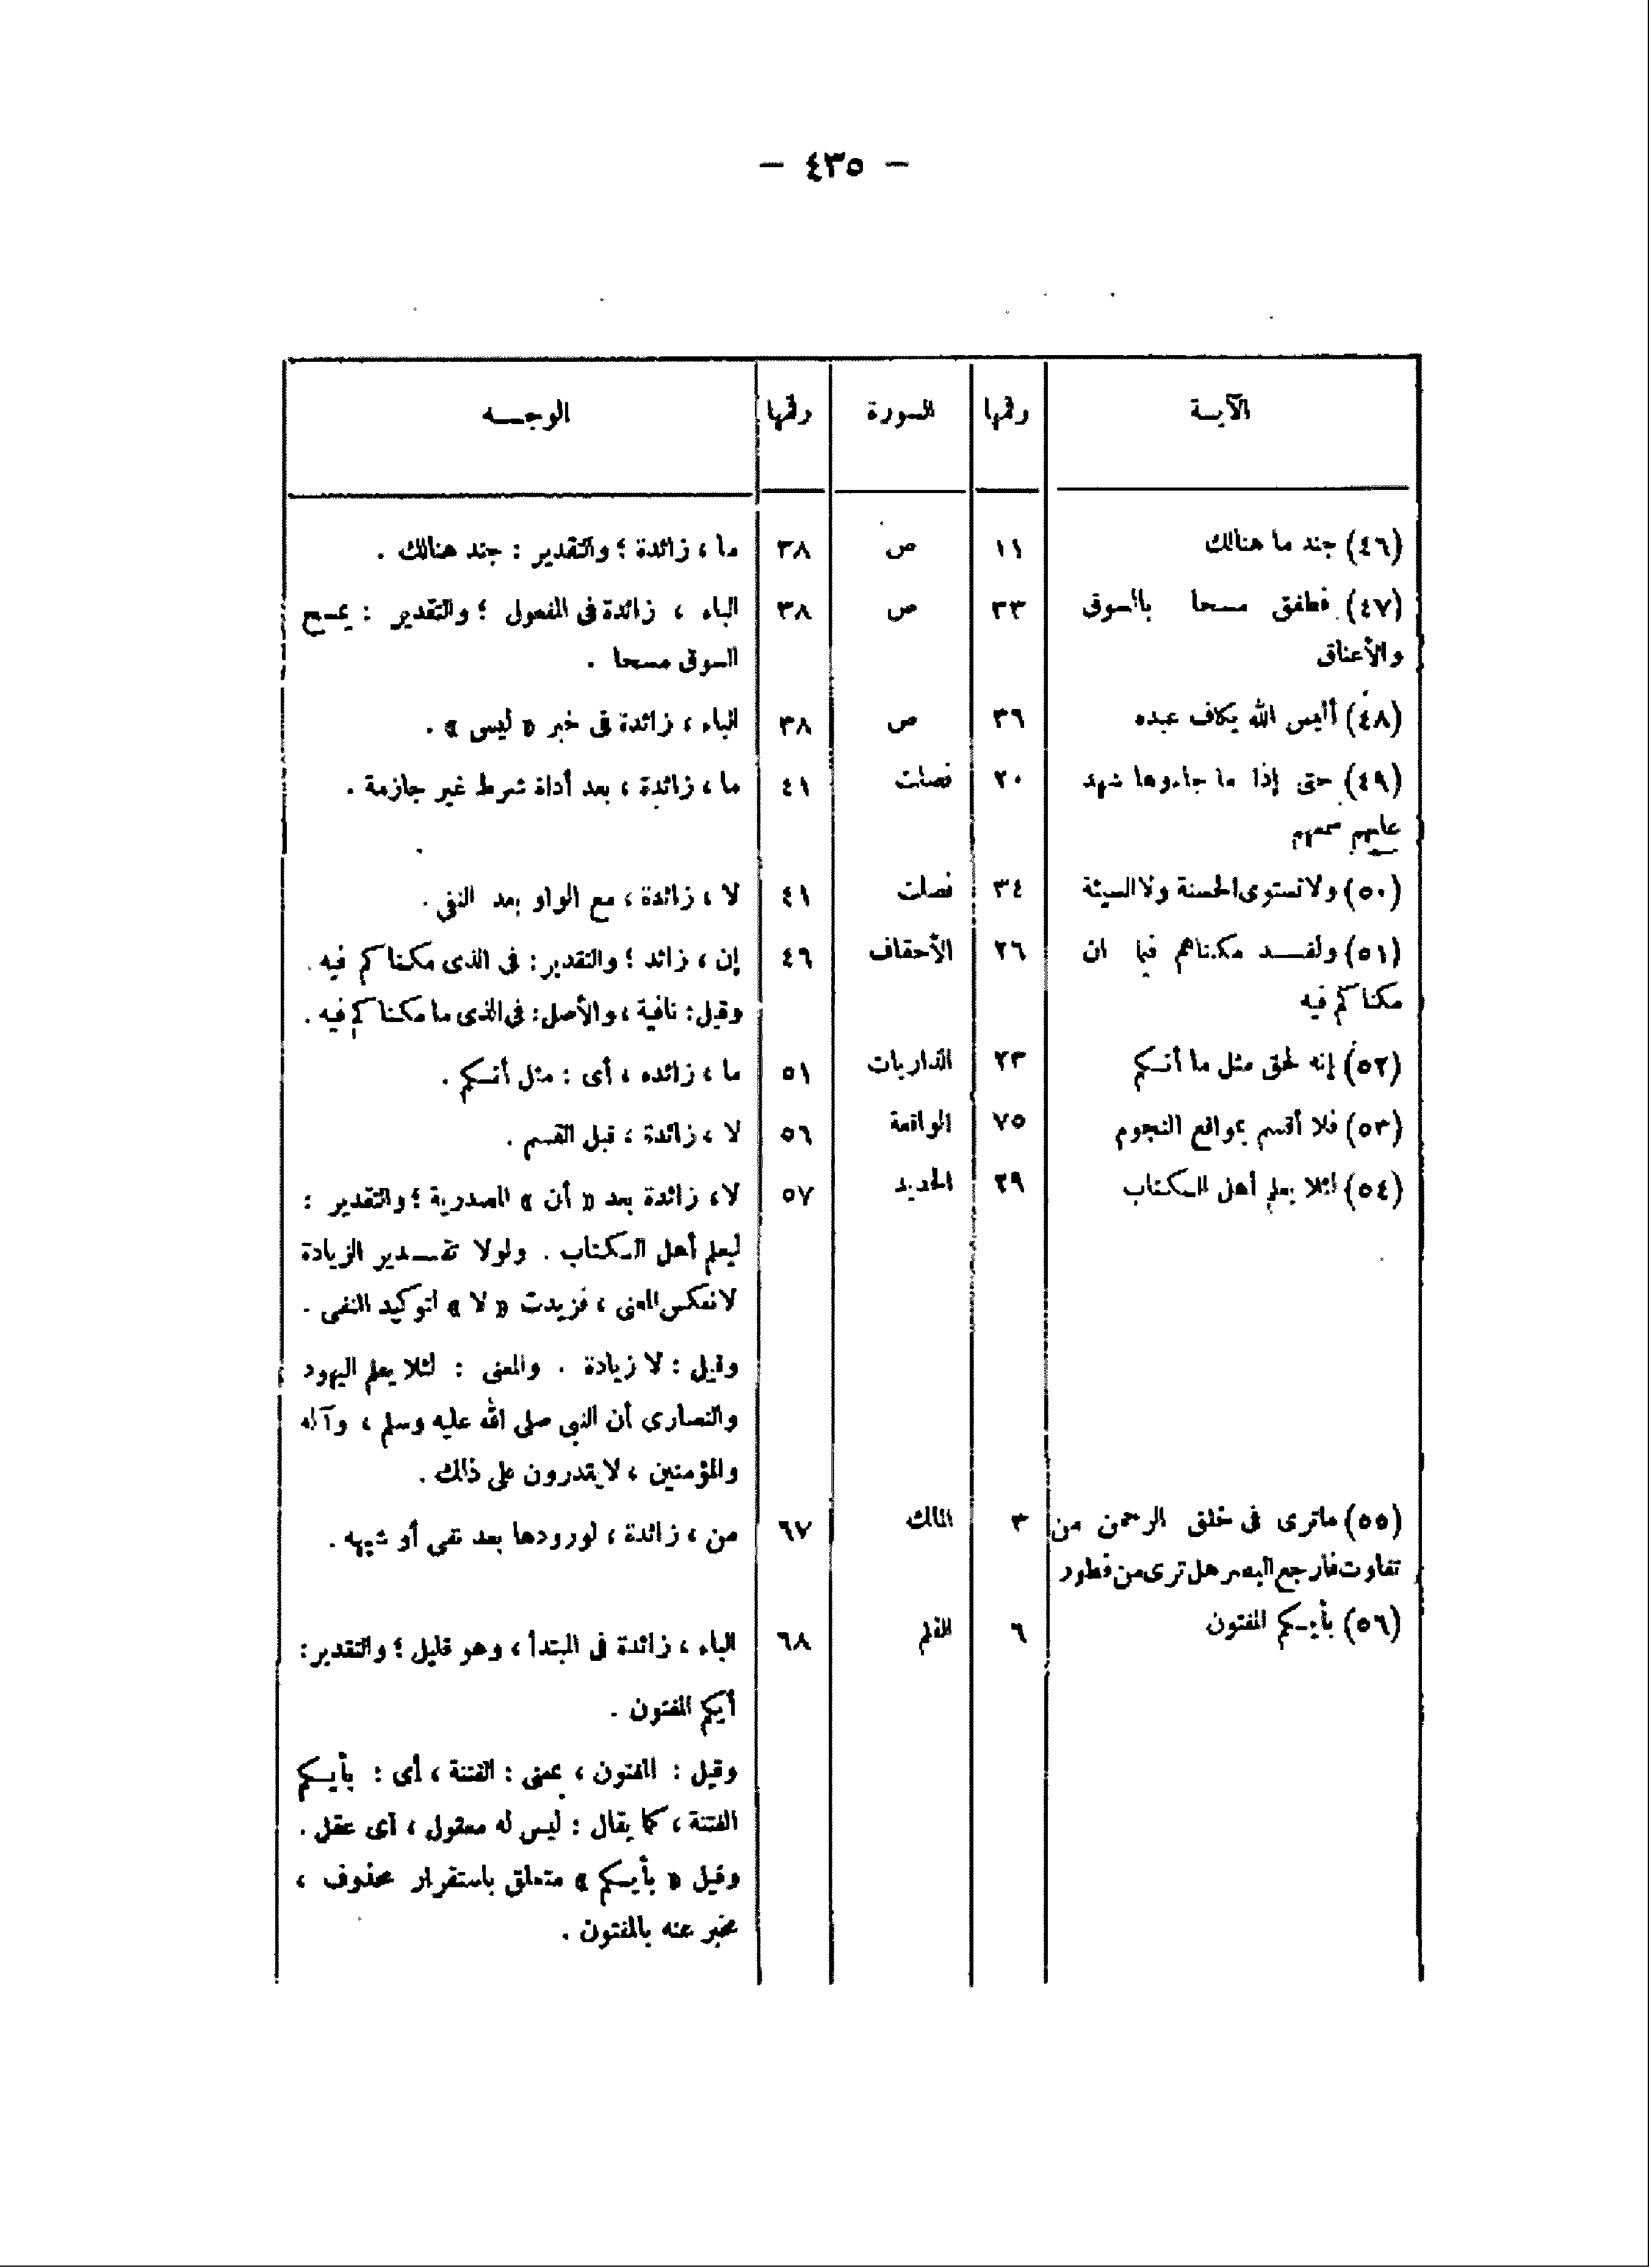 — ٤٣٥ —
الآيـــة رقمها السورة رقمها الوجـــه
(٤٦) جند ما هنالك ١١ ص ٣٨ ما ، زائدة ؛ والتقدير : جند هنالك .
(٤٧) فطفق مسحا بالسوق ٣٣ ص ٣٨ الباء ، زائدة فى المفعول ؛ والتقدير : يمسح
والأعناق السوق مسحا .
(٤٨) أليس الله بكاف عبده ٣٦ ص ٣٨ الباء ، زائدة فى خبر « ليس » .
(٤٩) حتى إذا ما جاءوها شهد ٢٠ فصلت ٤١ ما ، زائدة ، بعد أداة شرط غير جازمة .
عليهم سمعهم
(٥٠) ولا تستوى الحسنة ولا السيئة ٣٤ فصلت ٤١ لا ، زائدة ، مع الواو بعد النفى .
(٥١) ولقـــد مكناهم فيما ان ٢٦ الأحقاف ٤٦ إن ، زائد ؛ والتقدير : فى الذى مكناكم فيه .
مكناكم فيه وقيل : نافية ، والأصل : فى الذى ما مكناكم فيه .
(٥٢) إنه لحق مثل ما أنـكم ٢٣ الذاريات ٥١ ما ، زائده ، أى : مثل أنـكم .
(٥٣) فلا أقسم بمواقع النجوم ٧٥ الواقعة ٥٦ لا ، زائدة ، قبل القسم .
(٥٤) لئلا يعلم أهل الـكتاب ٢٩ الحديد ٥٧ لا ، زائدة بعد « أن » المصدرية ؛ والتقدير :
ليعلم أهل الـكتاب . ولولا تقـــدير الزيادة
لانعكس المعنى ، فزيدت « لا » لتوكيد النفى .
وقيل : لا زيادة . والمعنى : لئلا يعلم اليهود
والنصارى أن النبى صلى الله عليه وسلم ، وآله
والمؤمنين ، لا يقدرون على ذلك .
(٥٥) ماترى فى خلق الرحمن من ٣ الملك ٦٧ من ، زائدة ، لورودها بعد نفى أو شبهه .
تفاوت فارجع البصر هل ترى من فطور
(٥٦) بأيـكم المفتون ٦ القلم ٦٨ الباء ، زائدة فى المبتدأ ، وهو قليل ؛ والتقدير :
أيكم المفتون .
وقيل : المفتون ، بمعنى : الفتنة ، أى : بأيـكم
الفتنة ، كما يقال : ليس له معقول ، أى عقل .
وقيل « بأيـكم » متعلق باستقرار محذوف ،
مخبر عنه بالمفتون .